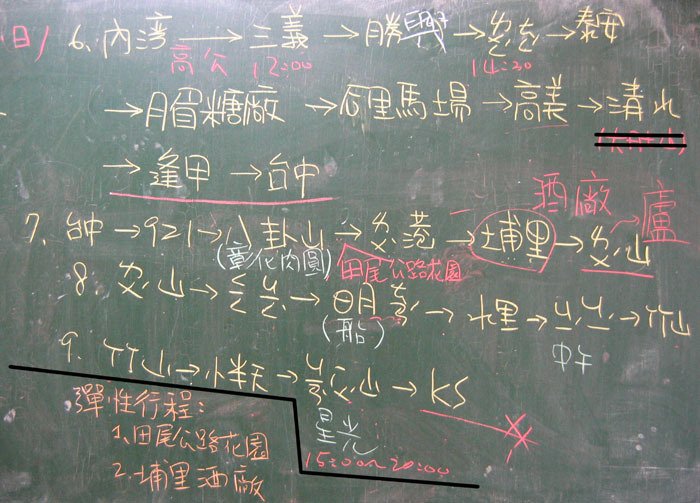 (日) 6、內灣 → 三義 → 勝興 → → 泰安
高公 12:00 14:20
→ 月眉糖廠 → 后里馬場 → 高美 → 清水
→ 逢甲 → 台中
酒廠 盧
7、台中 → 921 → 八卦山 → → 埔里 → 山
(彰化肉圓) 田尾公路花園
8、 山 → → 日月 → 水里 → → 竹山
(船) 中午
9、竹山 → 小半天 → 山 → KS
彈性行程:
星光
1.田尾公路花園
15:00~20:00
2.埔里酒廠